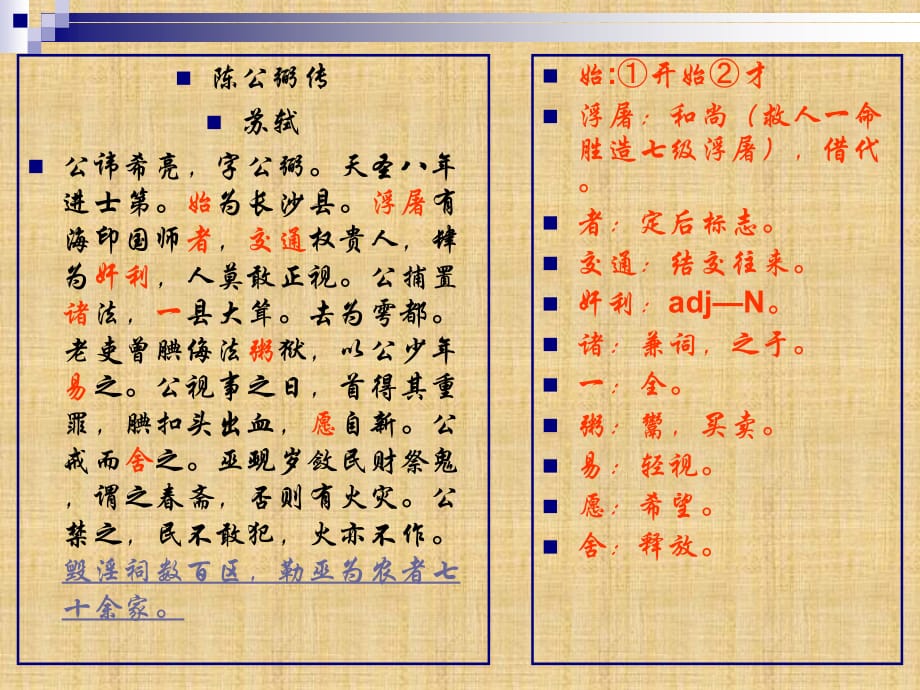 陈公弼传
苏轼
公讳希亮，字公弼。天圣八年
进士第。始为长沙县。浮屠有
海印国师者，交通权贵人，肆
为奸利，人莫敢正视。公捕置
诸法，一县大耸。去为雩都。
老吏曾腆侮法粥狱，以公少年
易之。公视事之日，首得其重
罪，腆扣头出血，愿自新。公
戒而舍之。巫觋岁敛民财祭鬼
，谓之春斋，否则有火灾。公
禁之，民不敢犯，火亦不作。
毁淫祠数百区，勒巫为农者七
十余家。
始:①开始②才
浮屠：和尚（救人一命
胜造七级浮屠），借代
。
者：定后标志。
交通：结交往来。
奸利：adj—N。
诸：兼词，之于。
一：全。
粥：鬻，买卖。
易：轻视。
愿：希望。
舍：释放。